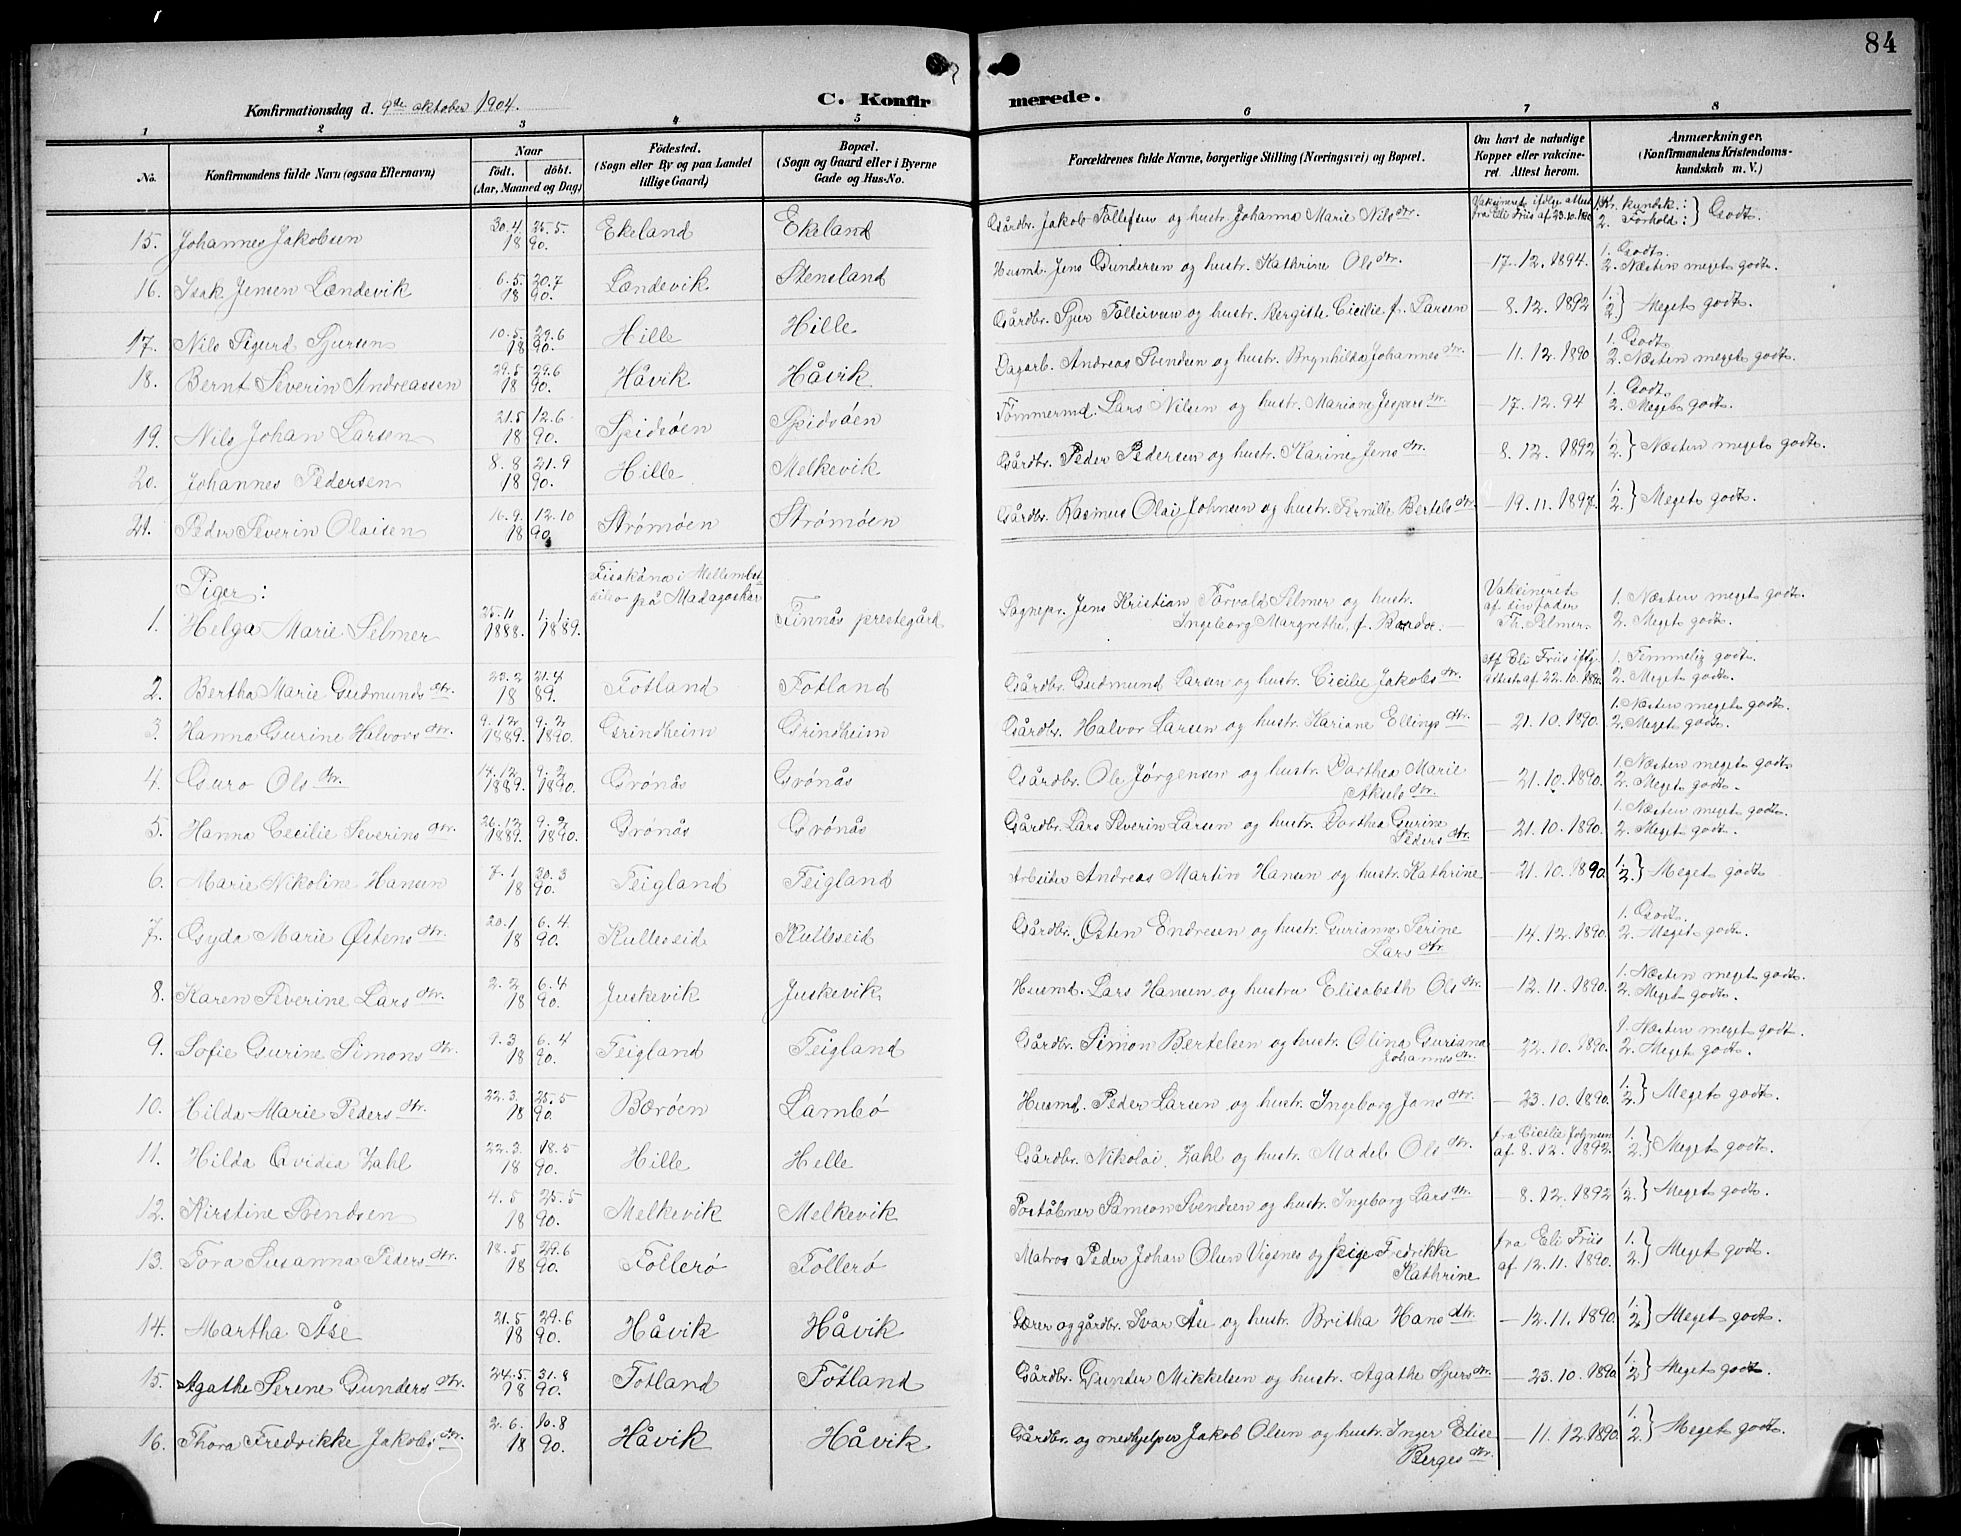 84
Konfirmationsdag d. 9de oktober 1904.
C. Konfirmerede.
1 2 3 4 5 6 7 8
No.
Konfirmandens fulde Navn (ogsaa Efternavn)
Naar
födt. döbt.
(Aar, Maaned og Dag)
Födested.
(Sogn eller By og paa Landet
tillige Gaard)
Bopæl.
(Sogn og Gaard eller i Byerne
Gade og Hus-No.
Forældrenes fulde Navne, borgerlige Stilling (Næringsvei) og Bopæl.
Om havt de naturlige
Kopper eller vakcine-
ret Attest herom.
Anmærkninger.
(Konfirmandens Kristendoms-
kundskab m. V.)
15. Johannes Jakobsen 30.4. 25.5. 1890. Ekeland Ekeland Gårdbr. Jakob Tollefsen og hustr. Johanna Marie Nilsdtr. Vaksineret ifölge attest fra Eli Friis af 23.10.1890 1. Kr. kundsk.: 2. Forhold: } Godt.
16. Isak Jensen Lændevik 6.5. 20.7 1890. Lændevik Stensland Husmd. Jens Gundersen og hustr. Kathrine Olsdtr. — 17.12.1894. 1. Godt. 2. Næsten meget godt.
17. Nils Sigurd Sjursen 10.5. 29.6 1890. Hille Hille Gårdbr. Sjur Tolleivsen og hustr. Bergitte Cicilie f. Larsen — 8.12.1892 1. 2. } Meget godt.
18. Bernt Severin Andreassen 29.5 29.6 1890. Håvik Håvik Dagarb. Andreas Svendsen og hustr. Brynhilda Johannesdtr. — 11.12.1890 1. Godt 2. Næsten meget godt.
19. Nils Johan Larsen 21.5 12.6 1890. Spidsöen Spidsöen Tømmermd. Lars Nilsen og hustr. Mariane Jespersdtr. — 17.12.94 1. Godt. 2. Meget godt.
20. Johannes Pedersen 8.8 21.9 1890. Hille Melkevik Gårdbr. Peder Pedersen og hustr. Karine Jensdtr. — 8.12.1892 1. 2. } Næsten meget godt.
21. Peder Severin Olaisen 16.9. 12.10 1890. Strømøen Strømøen Gårdbr. Rasmus Olai Johnsen og hustr. Pernille Bertelsdtr. — 19.11.1897. 1. 2. } Meget godt.
Piger:
1. Helga Marie Selmer 25.11 1888. 1.1. 1889. på Madagaskar Finnås prestegård Sognepr. Jens Kristian Torvald Selmer og hustr. Ingeborg Margrethe, f. Vaksineret af sin fader Th. Selmer. 1. Næsten meget godt. 2. Meget godt.
2. Bertha Marie Gudmundsdtr. 22.2 21.4 1889. Totland Totland Gårdbr. Gudmund Larsen og hustr. Cicilie Jakobsdtr. Af Eli Friis iflg. attest af 22.10.1890. 1. Temmelig godt. 2. Meget godt.
3. Hanna Gurine Halvorsdtr. 9.12 1889. 9.2 1890. Grindheim Grindheim Gårdbr. Halvor Larsen og hustr. Kariane Ellingsdtr. — 21.10.1890. 1. Næsten meget godt. 2. Meget godt.
4. Guro Olsdtr. 14.12 1889. 9.2 1890. Grönås Grönås Gårdbr. Ole Jørgensen og hustr. Dorthea Marie Akselsdtr. — 21.10.1890. 1. Næsten meget godt. 2. Meget godt.
5. Hanna Cecilie Severinsdtr. 26.12 1889. 9.2 1890. Grönås Grönås Gårdbr. Lars Severin Larsen og hustr. Dorthea Gurine Pedersdtr. — 21.10.1890. 1. Næsten meget godt. 2. Meget godt.
6. Marie Nikoline Hansen 7.1 30.3 1890. Teigland Teigland Arbeider Andreas Martin Hansen og hustr. Kathrine — 21.10.1890. 1. 2. } Meget godt
7. Gyda Marie Østensdtr. 20.1 6.4. 1890. Kulleseid Kulleseid Gårdbr. Østen Endresen og hustr. Gurianne Serine Larsdtr. — 14.12.1890. 1. Godt. 2. Meget godt.
8. Karen Severine Larsdtr. 2.2 6.4 1890. Juskevik Juskevik Husmd. Lars Hansen og hustru Elisabeth Olsdtr. — 12.11.1890. 1. Næsten meget godt. 2. Meget godt.
9. Sofie Gurine Simonsdtr. 1.3 6.4 1890. Teigland Teigland Gårdbr. Simon Bertelsen og hustr. Olina Guriana Johannesdtr. — 22.10.1890. 1. Næsten meget godt. 2. Meget godt.
10. Hilda Marie Pedersdtr. 22.3. 25.5 1890. Bærøen Lambø Husmd. Peder Larsen og hustr. Ingeborg Jonsdtr. — 23.10.1890. 1. 2. } Meget godt.
11. Hilda Ovidia Zahl 22.3. 18.5 1890. Hille Helle Gårdbr. Nikolai Zahl og hustr. Madel Olsdtr. fra Cicilie Johnsen af 8.12.1892. 1. 2. } Meget godt.
12. Kirstine Svendsen 4.5 25.5 1890. Melkevik Melkevik Poståbner Samson Svendsen og hustr. Ingeborg Larsdtr. — 8.12.1892 1. 2. } Meget godt.
13. Tora Susanna Pedersdtr. 18.5 29.6 1890. Tollerø Tollerø Matros Peder Johan Olsen Vigsnes og pige Fredrikke Kathrine fra Eli Friis af 12.11.1890. 1. 2. } Meget godt.
14. Martha Åse 21.5 29.6 1890. Håvik Håvik Lærer og gårdbr. Ivar Åse og hustr. Britha Hansdtr. — 12.11.1890. 1. 2. } Meget godt.
15. Agathe Serene Gundersdtr. 24.5. 31.8 1890. Totland Totland Gårdbr. Gunder Mikkelsen og hustr. Agathe Sjursdtr. — 23.10.1890. 1. 2. } Meget godt.
16. Thora Fredrikke Jakobsdtr. 2.6. 10.8 1890. Håvik Håvik Gårdbr. og medhjelper Jakob Olsen og hustr. Inger Elise Bergesdtr. — 11.12.1890. 1. 2. } Meget godt.